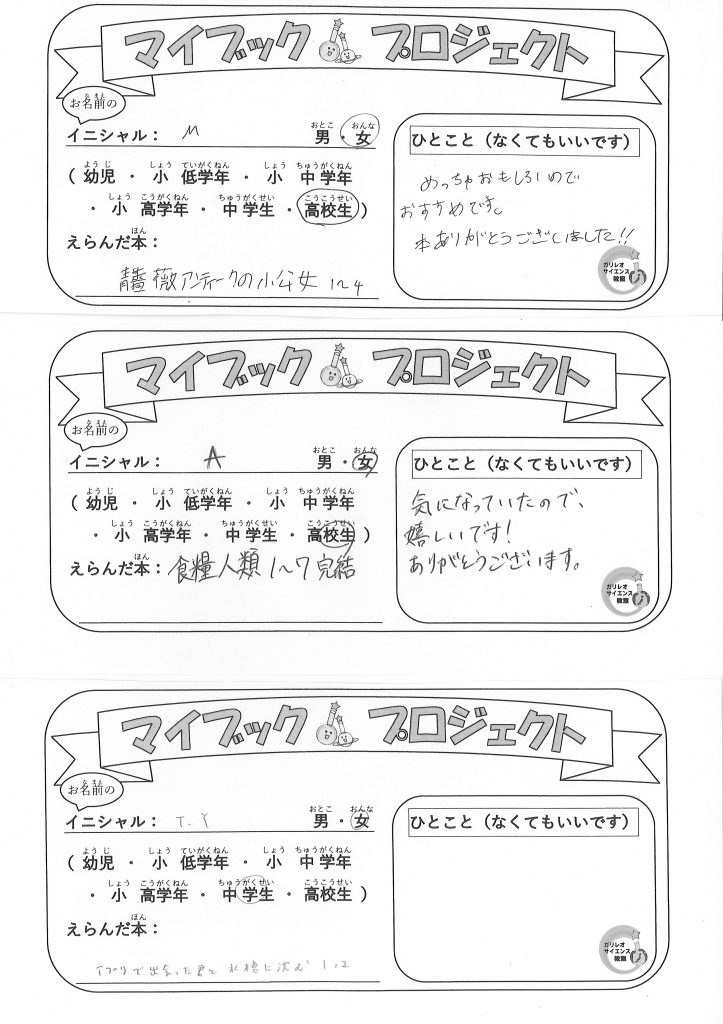 マイブック プロジェクト
お名前の
イニシャル： M 男・女
（幼児・小 低学年・小 中学年
・小 高学年・中学生・高校生）
えらんだ本：
青薔薇アンティークの小公女 1〜4
ひとこと（なくてもいいです）
めっちゃおもしろいので
おすすめです。
*ありがとうございました!!
ガリレオ
サイエンス
教室
マイブック プロジェクト
お名前の
イニシャル： A 男・女
（幼児・小 低学年・小 中学年
・小 高学年・中学生・高校生）
えらんだ本：食糧人類 1〜7 完結
ひとこと（なくてもいいです）
気になっていたので、
嬉しいです!
ありがとうございます。
ガリレオ
サイエンス
教室
マイブック プロジェクト
お名前の
イニシャル： T.Y 男・女
（幼児・小 低学年・小 中学年
・小 高学年・中学生・高校生）
えらんだ本：
アプリで出会った君と 水槽に沈む 1,2
ひとこと（なくてもいいです）
ガリレオ
サイエンス
教室